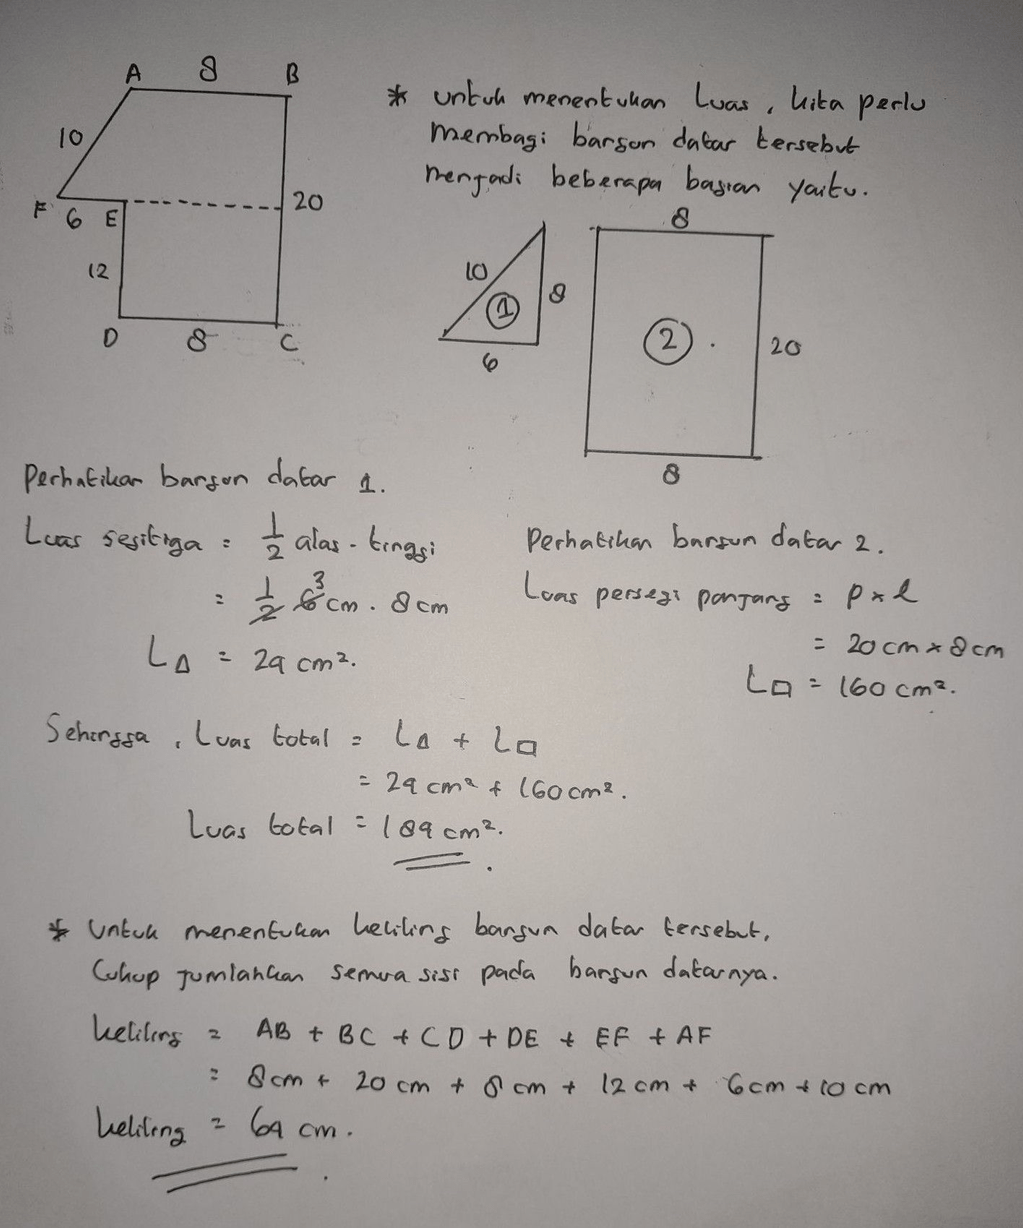 A 8 B
10
F 6 E
20
12
D 8 C
* untuk menentukan Luas, kita perlu
membagi bangun datar tersebut
menjadi beberapa bagian yaitu.
10
1
8
6
8
2
20
8
Perhatikan bangun datar 1.
Luas segitiga = 1/2 alas . tinggi
= 1/2 6 3 cm . 8 cm
L△ = 24 cm².
Perhatikan bangun datar 2.
Luas persegi panjang = p x l
= 20 cm x 8 cm
L□ = 160 cm².
Sehingga, Luas total = L△ + L□
= 24 cm² + 160 cm².
Luas total = 184 cm².
* Untuk menentukan keliling bangun datar tersebut,
Cukup jumlahkan semua sisi pada bangun datarnya.
keliling = AB + BC + CD + DE + EF + AF
= 8 cm + 20 cm + 8 cm + 12 cm + 6 cm + 10 cm
keliling = 64 cm.